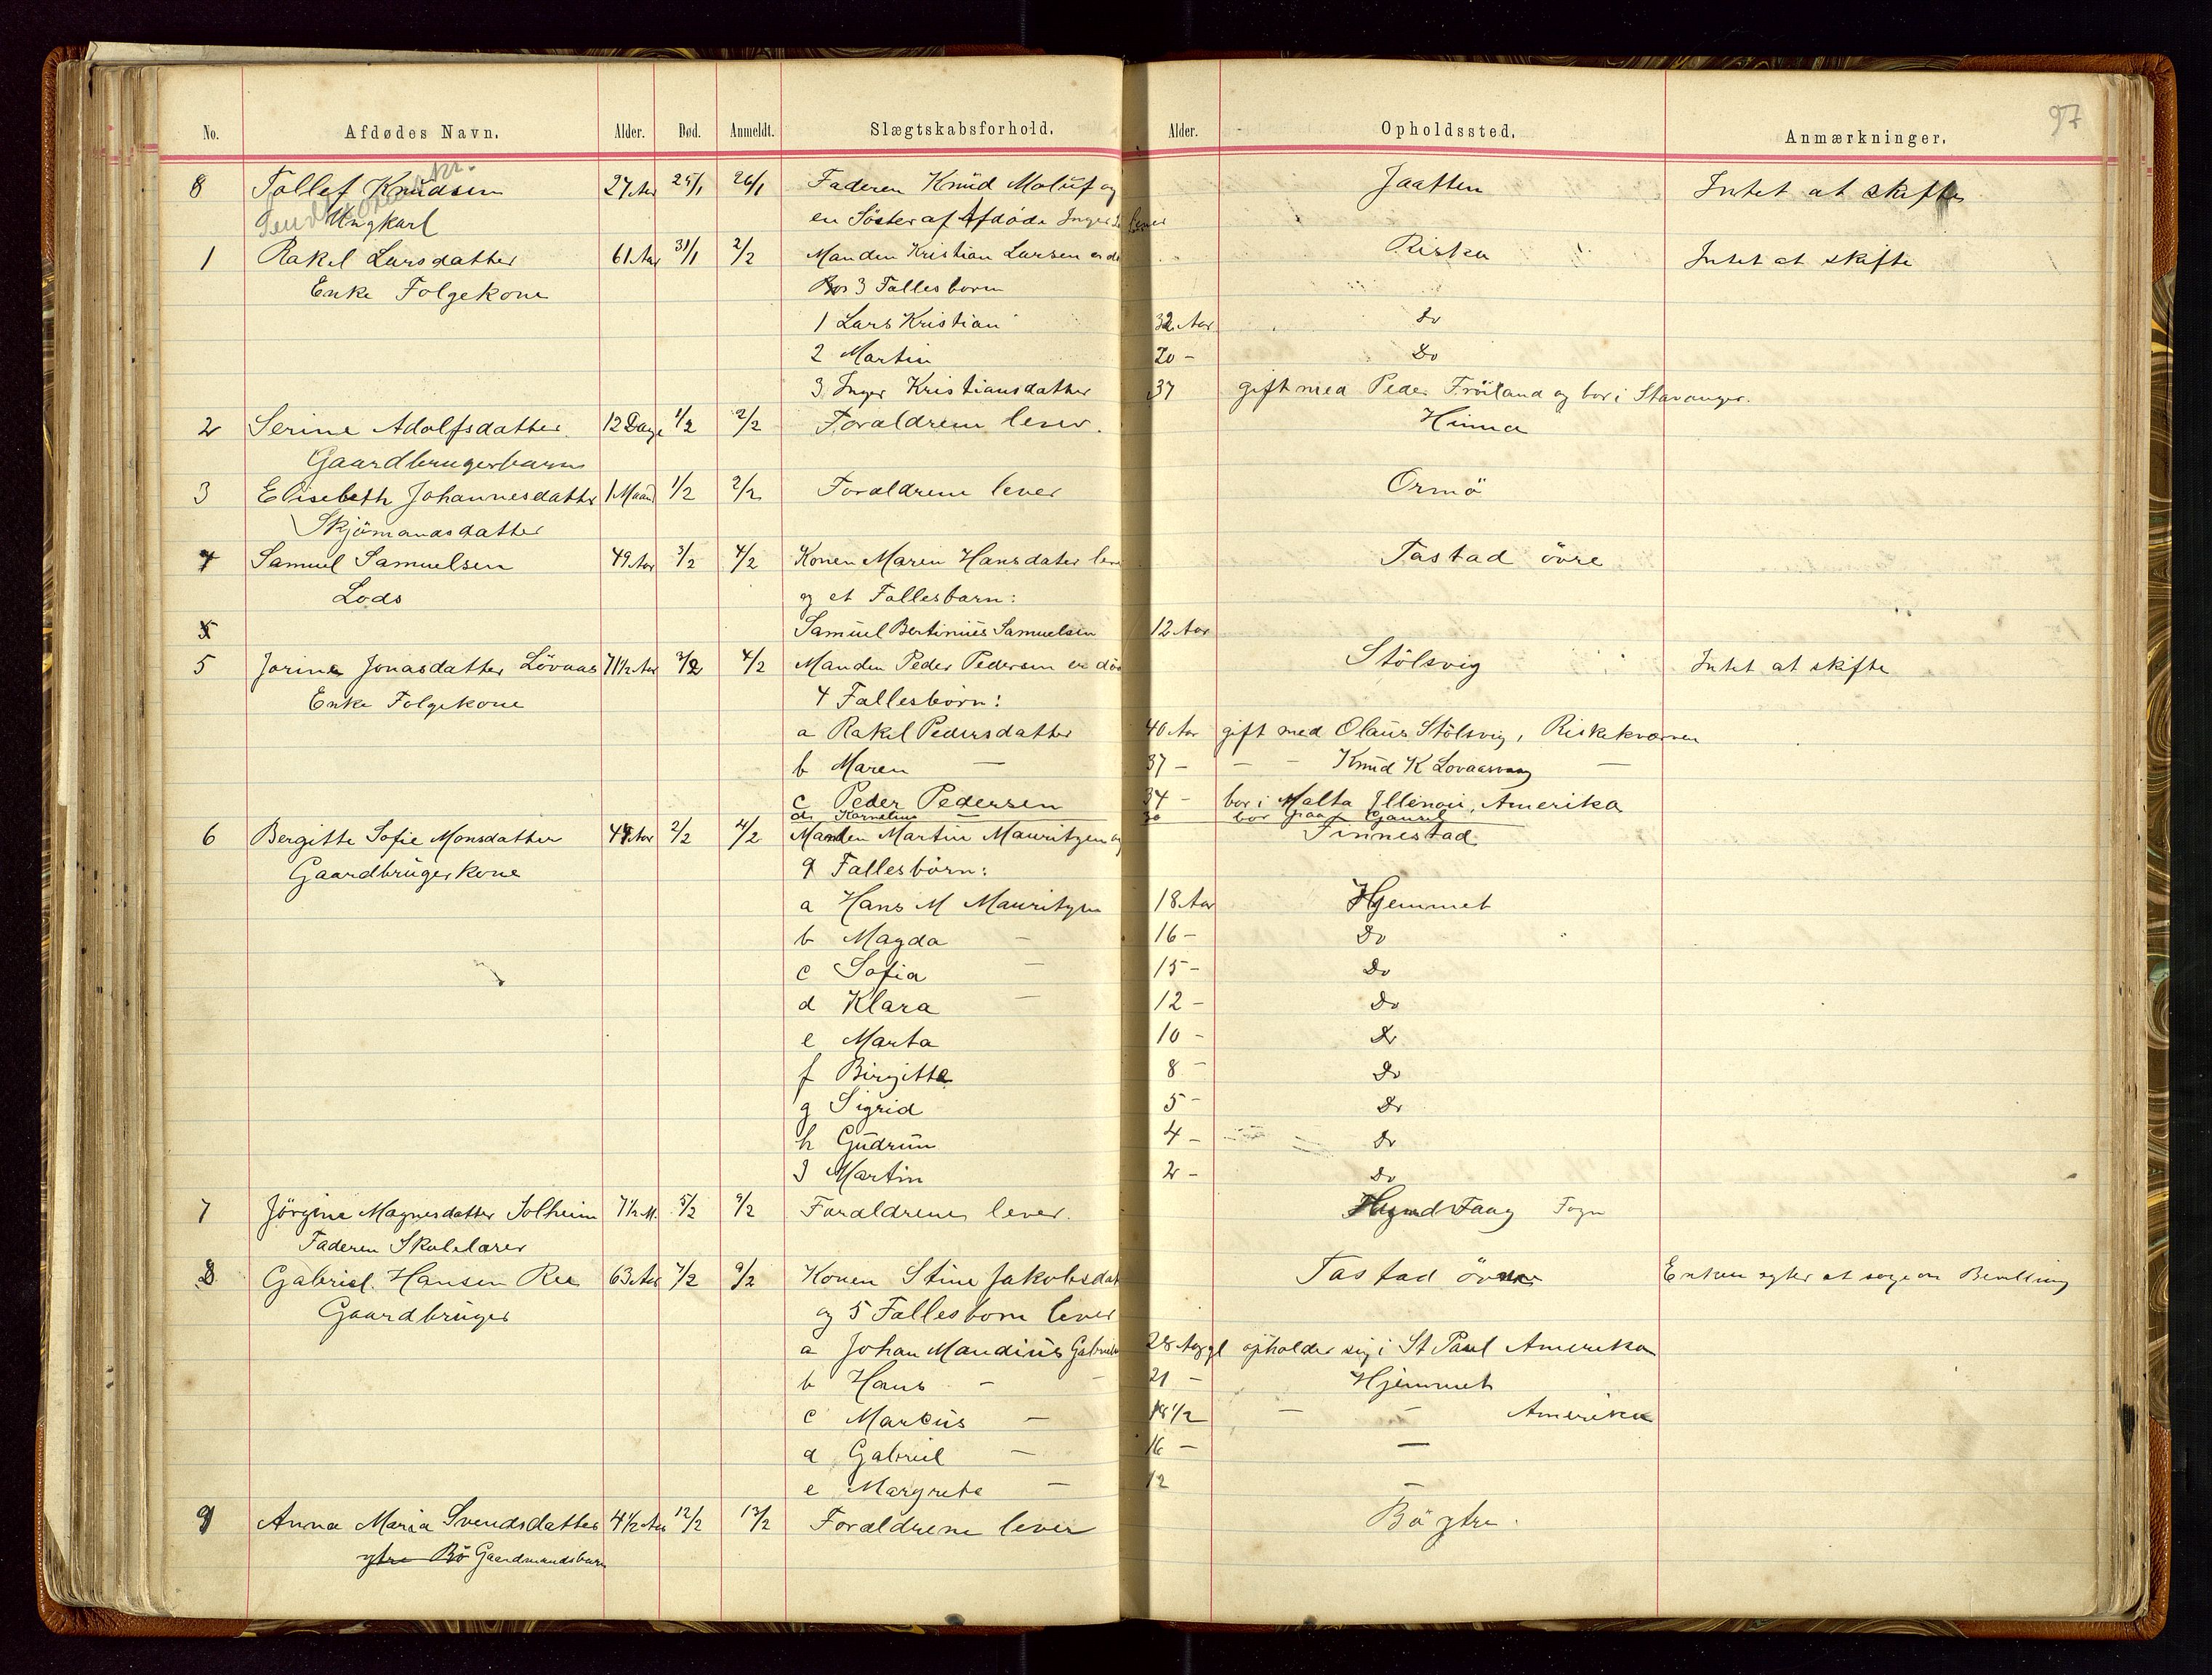 97
No. Afdødes Navn. Alder. Død. Anmeldt. Slægtskabsforhold. Alder. Opholdssted. Anmærkninger.
8 Tollef Knudsen 27 Aar 25/1 26/1 Faderen Knud Moluf og Jaatten Intet at skifte
Ungkarl en Söster af Afdöde Inger lever
1 Rakel Larsdatter 61 Aar 31/1 2/2 Manden Kristian Larsen er Riska Intet at skifte
Enke Folgekone 3 Fallesborn
1 Lars Kristian 32 Aar Do
2 Martin 20 - Do
3 Inger Kristiansdatter 37 gift med Peder Fröiland og bor i Stavanger.
2 Serine Adolfsdatter 12 Dage 1/2 2/2 Foraldrene lever. Hinna
Gaardbrugerbarn
3 Elisebeth Johannesdatter 1 Maand 1/2 2/2 Foraldrene lever Ormö
Skjömandsdatter
4 Samuel Samuelsen 49 Aar 3/2 4/2 Konen Maren Hansdater Tastad övre
Lods og et Fallesbarn:
Samuel Bertinius Samuelsen 12 Aar
5 Jorine Jonasdatter Lövaas 71 1/2 Aar 3/2 4/2 Manden Peder Pedersen er död Stölsvig Intet at skifte
Enke Folgekone 4 Fallesbörn:
a Rakel Pedersdatter 40 Aar gift med Olaus Stölsvig, Riskekvarven
b Maren — 37 - — - Knud K Lovaasvaag —
c Peder Pedersen 34 - bor i Malta Illinoii, Amerika
d Kornelius — 30 bor paa Gausel
6 Bergitte Sofie Monsdatter 2/2 4/2 Manden Martin Mauritzen og Finnestad
Gaardbruger kone 9 Fallesbörn:
a Hans M Mauritzen 18 Aar Hjemmet
b Magda — 16 - Do
c Sofia — 15 - Do
d Klara — 12 - Do
e Marta 10 - Do
f Birgitte 8 - Do
g Sigrid 5 - Do
h Gudrun 4 - Do
J Martin 2 - Do
7 Jörgine Magnesdatter Solheim 7 1/2 M. 5/2 9/2 Foraldrene lever. Fogn
Faderen Skolelarer
8 Gabriel Hansen Ree 63 Aar 7/2 9/2 Konen Stine Jakobsdat Tastad övre Enken agter at soge om Bevilling
Gaardbruger og 5 Fallesborn lever
a Johan Mandius 28 Aar gl opholder sig i St Paul Amerika
b Hans — 21 - Hjemmet
c Marcus — 18 1/2 — - Amerika
d Gabriel — 16 - —
e Margrete — 12 —
9 Anna Maria Svendsdatter 4 1/2 Aar 12/2 13/2 Foraldrene lever Bö ytre.
ytre Bö Gaardmandsbarn